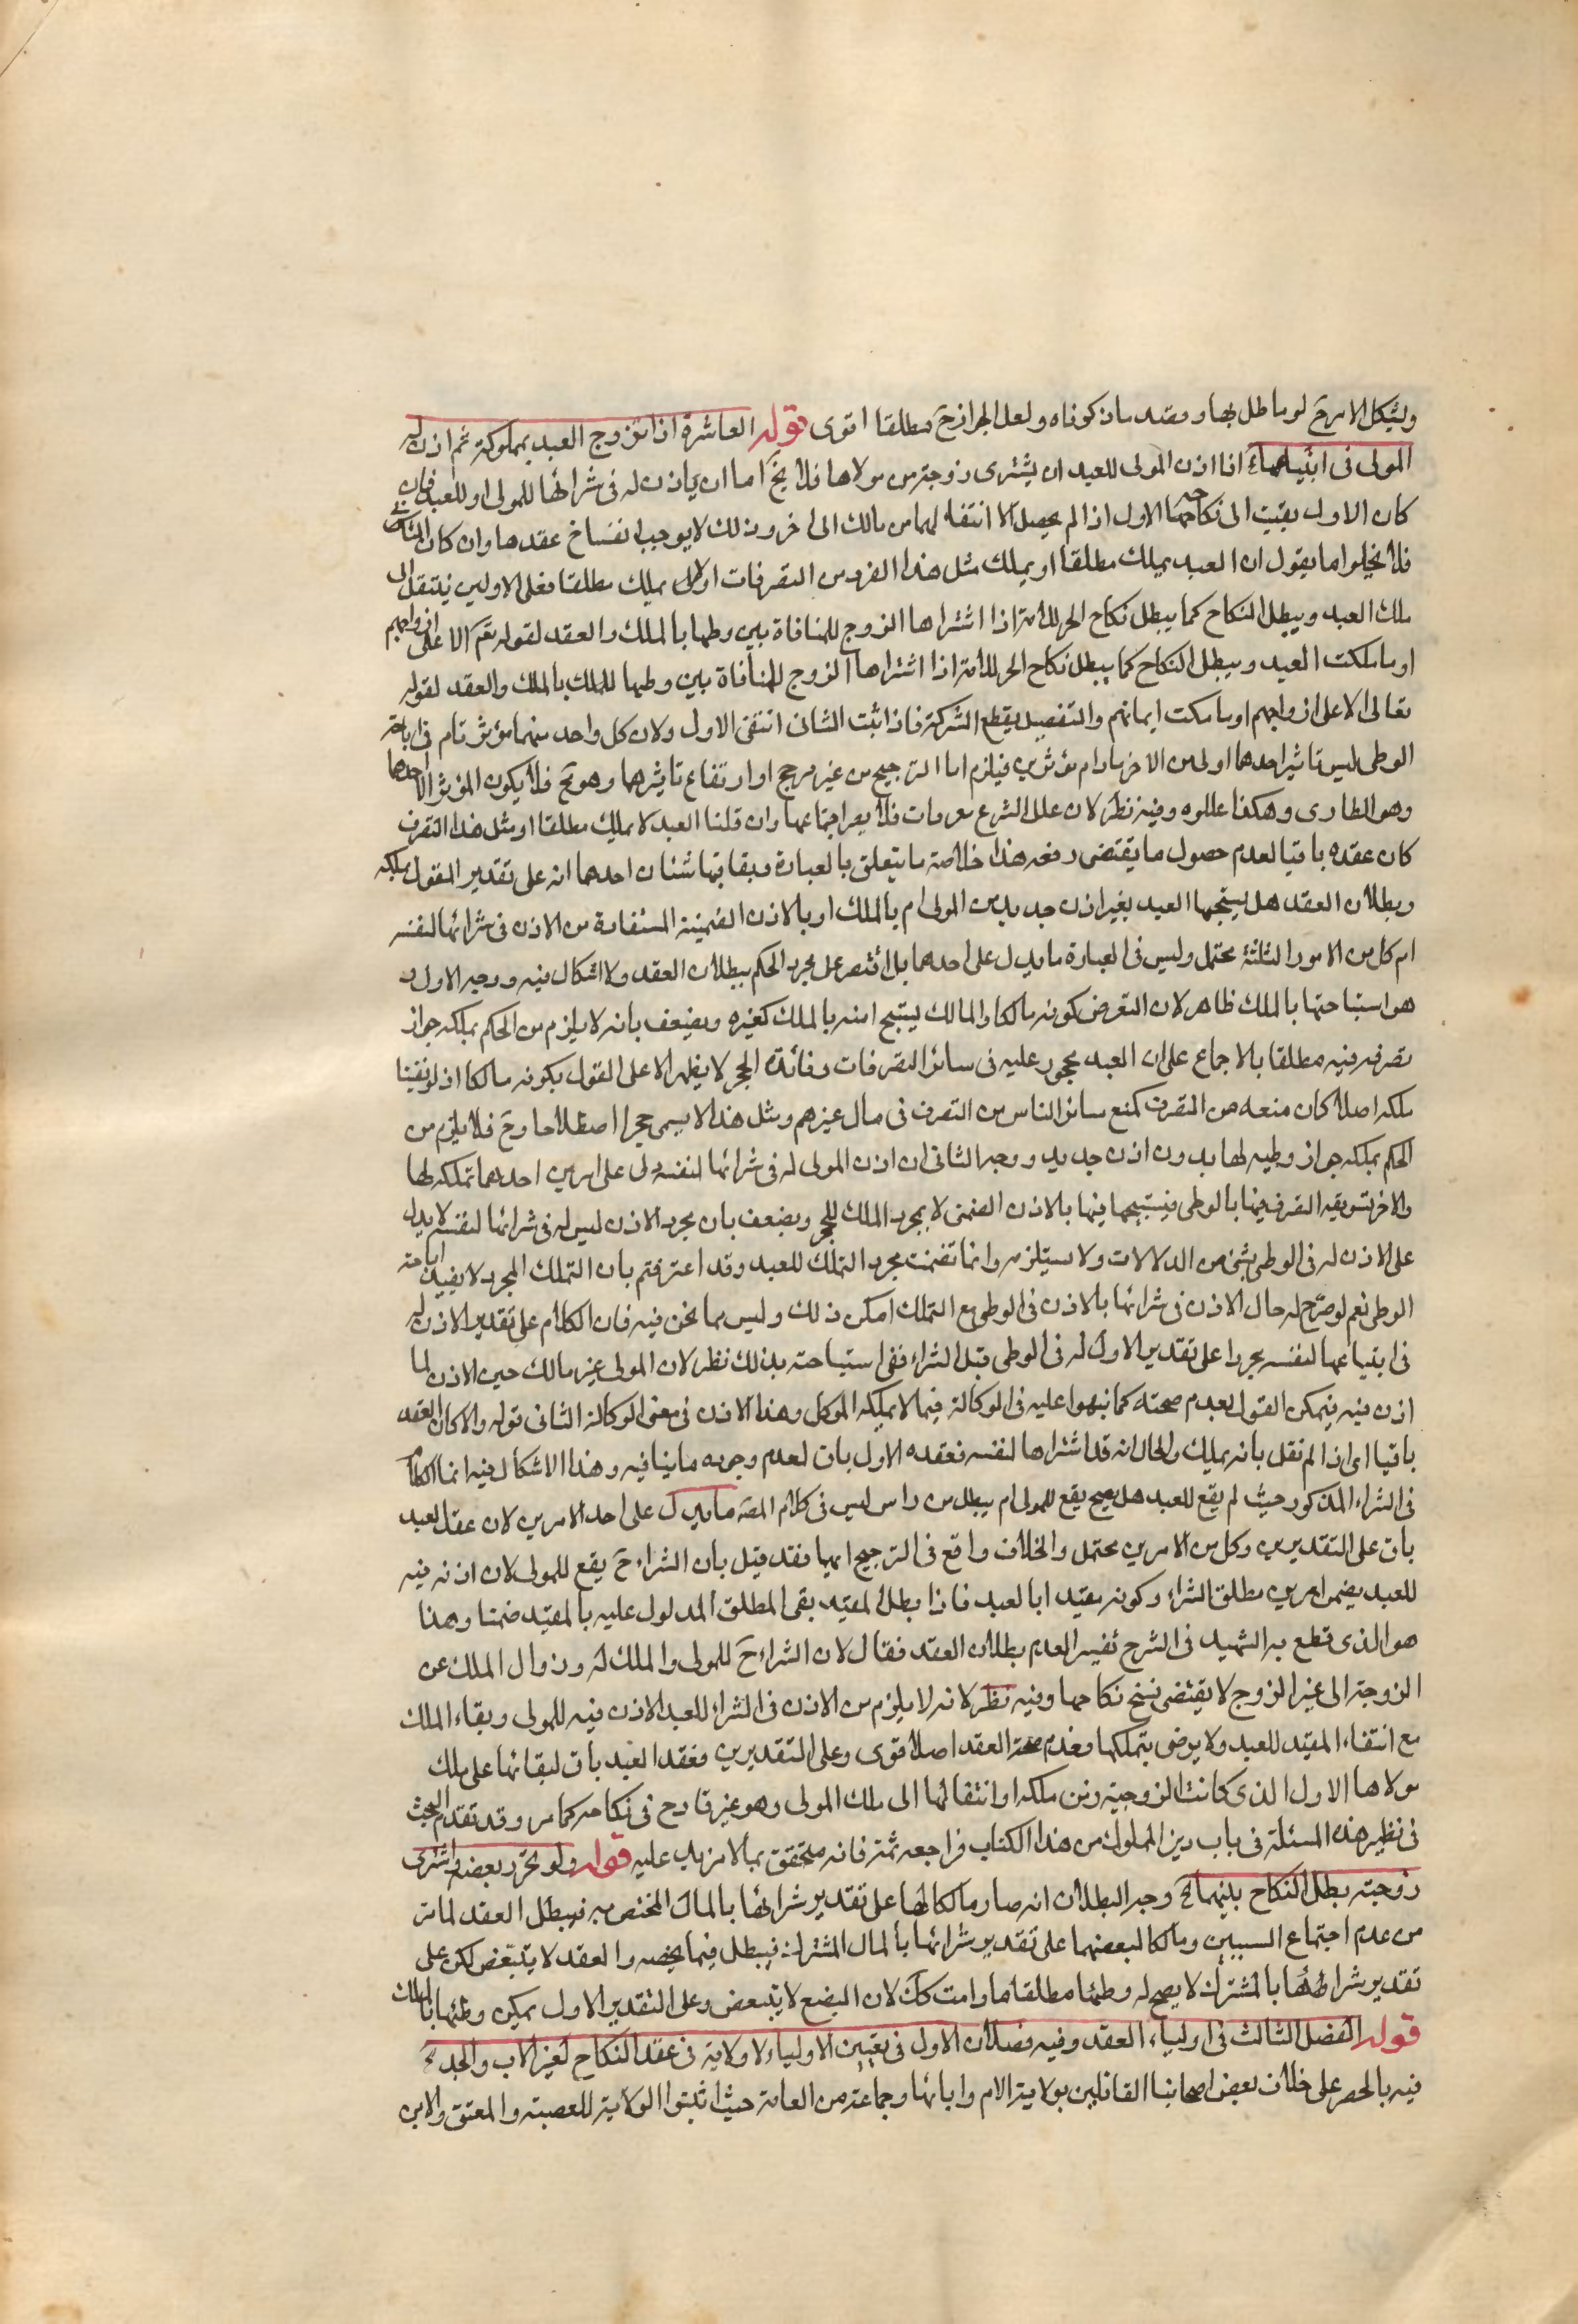 ويشكل الامر ح لو ماطل بها و مقيد ما ذكوناه ولعل الجواز ح مطلقا اقوى قوله العاشرة اذا تزوج العبد بمملوكة ثم اذن له
المولى فى ابتياعها ء اذا اذن المولى للعبد ان يشترى زوجته من مولاها فلا يخ اما ان ياذن له فى شرائها للمولى او للعبد فان
كان الاول بقيت الى نكاحها الاول اذا لم يحصل الا انتقالهما من مالك الى اخر و ذلك لا يوجب انفساخ عقدها وان كان الثانى
فلا يخلوا ما يقول ان العبد يملك مطلقا او يملك مثل هذا الفرد من التصرفات او لا يملك مطلقا فعلى الاولين ينتقل الى
ملك العبد ويبطل النكاح كما يبطل نكاح الحر للامة اذا اشتراها الزوج للمنافاة بين وطيها بالملك والعقد لقوله تعم الا على ازواجهم
او ما ملكت العبد ويبطل النكاح كما يبطل نكاح الحر للامة اذا اشتراها الزوج للمنافاة بين وطيها للملك بالملك والعقد لقوله
تعالى الا على ازواجهم او ما ملكت ايمانهم والتفصيل يقطع الشركة فاذا ثبت الثانى انتفى الاول ولان كل واحد منهما مؤثر تام فى اباحة
الوطى ليس تاثير احدهما اولى من الاخر ما دام مؤثرين فيلزم اما الترجيح من غير مرجح او ارتفاع تاثيرهما وهو مح فلا يكون المؤثر الا احدهما
وهو الطارى وهكذا عللوه وفيه نظر لان علل الشرع معرفات فلا يضر اجتماعها وان قلنا العبد لا يملك مطلقا او مثل هذا التصرف
كان عقده باقيا لعدم حصول ما يقتضى رفعه هذا خلاصة ما يتعلق بالعبارة وبقا بتها شئان احدهما انه على تقدير القول بملكه
وبطلان العقد هل يستبيحها العبد بغير اذن جديد من المولى ام بالملك او بالاذن الضمينة المستفادة من الاذن فى شرائها لنفسه
ام كل من الامور الثلثة محتمل وليس فى العبارة ما يدل على احدهما بل اقتصر على مجرد الحكم ببطلان العقد ولا اشكال فيه ووجه الاول و
هو استباحتها بالملك ظاهر لان التعرض كونه مالكا والمالك يستبيح امته بالملك كغيره ويضعف بانه لا يلزم من الحكم بملكه جواز
تصرفه فيه مطلقا بالاجماع على ان العبد محجور عليه فى سائر التصرفات وفائدة الحجر لا يظهر الا على القول بكونه مالكا اذ لو نفينا
ملكه اصلا كان منعه من التصرف كمنع سائر الناس من التصرف فى مال غيرهم ومثل هذا لا يسمى حجرا اصطلاحا وح فلا يلزم من
الحكم بملكه جواز وطيه لها بدون اذن جديد ووجه الثانى ان اذن المولى له فى شرائها لنفسه دل على امرين احدهما تملكه لها
والاخر تسويغه التصرف فيها بالوطى فيستبيحها فيها بالاذن الضمنى لا بمجرد الملك للحجر ويضعف بان مجرد الاذن ليس له فى شرائها لنفسه لا يدل
على الاذن له فى الوطى بشئ من الدلالات ولا يستلزمه وانما تضمنت مجرد التملك للعبد وقد اعترفتم بان التملك المجرد لا يفيد اباحة
الوطى نعم لو صرح له حال الاذن فى شرائها بالاذن فى الوطى مع التملك امكن ذلك وليس مما نحن فيه فان الكلام على تقدير الاذن له
فى ابتياعها لنفسه مجردا على تقدير الاول له فى الوطى قبل الشراء ففى استباحته بذلك نظر لان المولى غير مالك حين الاذن لما
اذن فيه فيمكن القول بعدم صحته كما نبهوا عليه فى الوكالة فيما لا يملكه الموكل وهذا الاذن فى معنى الوكالة الثانى قوله والا كان العقد
باقيا اى اذا لم نقل بانه يملك والحال انه قد اشتراها لنفسه فعقده الاول باق لعدم وجود ما ينافيه وهذا لا اشكال فيه انما الكلام
فى الشراء المذكور حيث لم يقع للعبد هل يصح يقع للمولى ام يبطل من راس ليس فى كلام المصه ما يدل على احد الامرين لان عقد العبد
باق على التقديرين وكل من الامرين محتمل والخلاف واقع فى الترجيح ايها فقد قيل بان الشراء ح يقع للمولى لان اذنه فيه
للعبد يضمن امرين مطلق الشراء وكونه مقيدا بالعبد فاذا بطل المقيد بقى المطلق المدلول عليه بالمقيد ضمنا وهذا
هو الذى قطع به الشهيد فى الشرح تفسير العدم بطلان العقد فقال لان الشراء ح للمولى والملك له وزوال الملك عن
الزوجة الى غير الزوج لا يقتضى نسخ نكاحها وفيه نظر لانه لا يلزم من الاذن فى الشراء للعبد الاذن فيه للمولى وبقاء الملك
مع انتفاء المقيد للعبد ولا يرضى بتملكها فعدم صحة العقد اصلا قوى وعلى التقديرين فعقد العبد باق لبقائها على ملك
مولاها الاول الذى كانت الزوجية زمن ملكه او انتقالها الى ملك المولى وهو غير قادح فى نكاحه كما مر وقد تقدم البحث
فى نظير هذه المسئلة فى باب دين المملوك من هذا الكتاب فراجعه ثمة فانه متحقق بما لا مزيد عليه قوله ولو تحرر بعضه واشترى
زوجته بطل النكاح بينهما ء وجه البطلان انه صار مالكا لها على تقدير شرائها بالمال المختص به فيبطل العقد لما مر
من عدم اجتماع السببين ومالكا لبعضها على تقدير شرائها بالمال المشترك فيبطل فيما يخصه والعقد لا يتبعض لكن على
تقدير شرائها بالمشترك لا يصح له وطئها مطلقا ما دامت كك لان البضع لا يتبعض وعلى التقدير الاول يمكن وطئها بالملك
قوله الفصل الثالث فى اولياء العقد وفيه فصلان الاول فى تعيين الاولياء لا ولاية فى عقد النكاح لغير الاب والجد ء
فيه بالحصر على خلاف بعض اصحابنا القائلين بولاية الام وابائها وجماعة من العامة حيث اثبتوا الولاية للعصبة والمعتق والابن